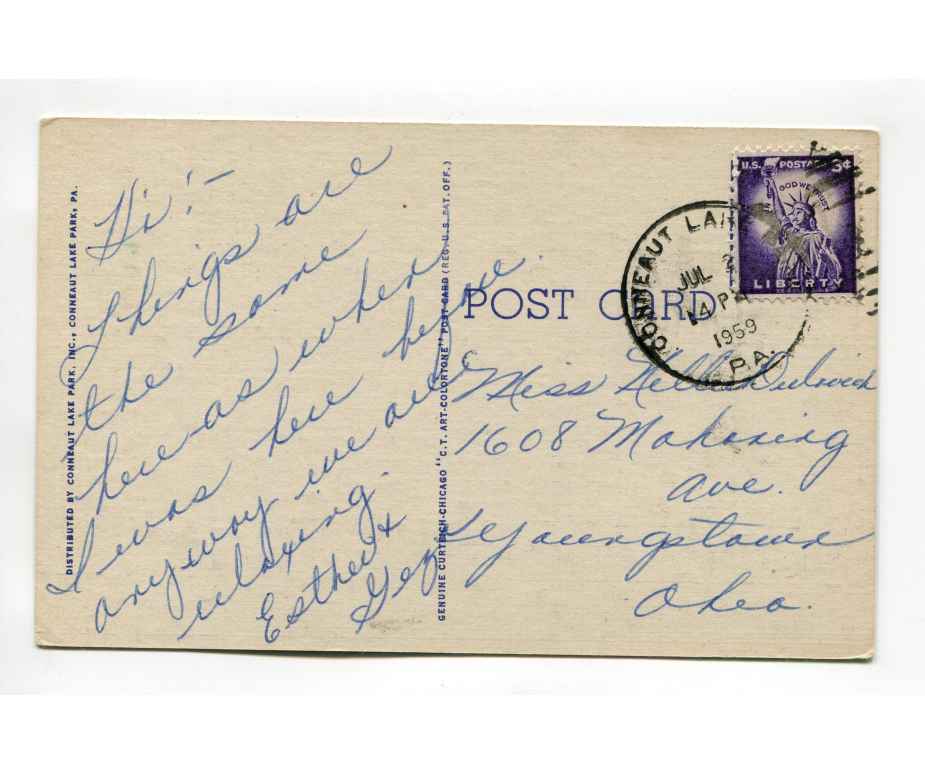 DISTRIBUTED BY CONNEAUT LAKE PARK, INC., CONNEAUT LAKE PARK, PA.
Hi! -
Things are
the same
here as when
I was here before
anyway we are
relaxing.
Esther &
GENUINE CURTEICH-CHICAGO "C.T. ART-COLORTONE" POST CARD (REG. U.S. PAT. OFF.)
POST CARD
U.S. POSTAGE 3¢
IN GOD WE TRUST
LIBERTY
CONNEAUT LAKE
JUL
4 PM
1959
PA.
Miss Nellie
1608 Mahoning
Ave.
Youngstown
Ohio.